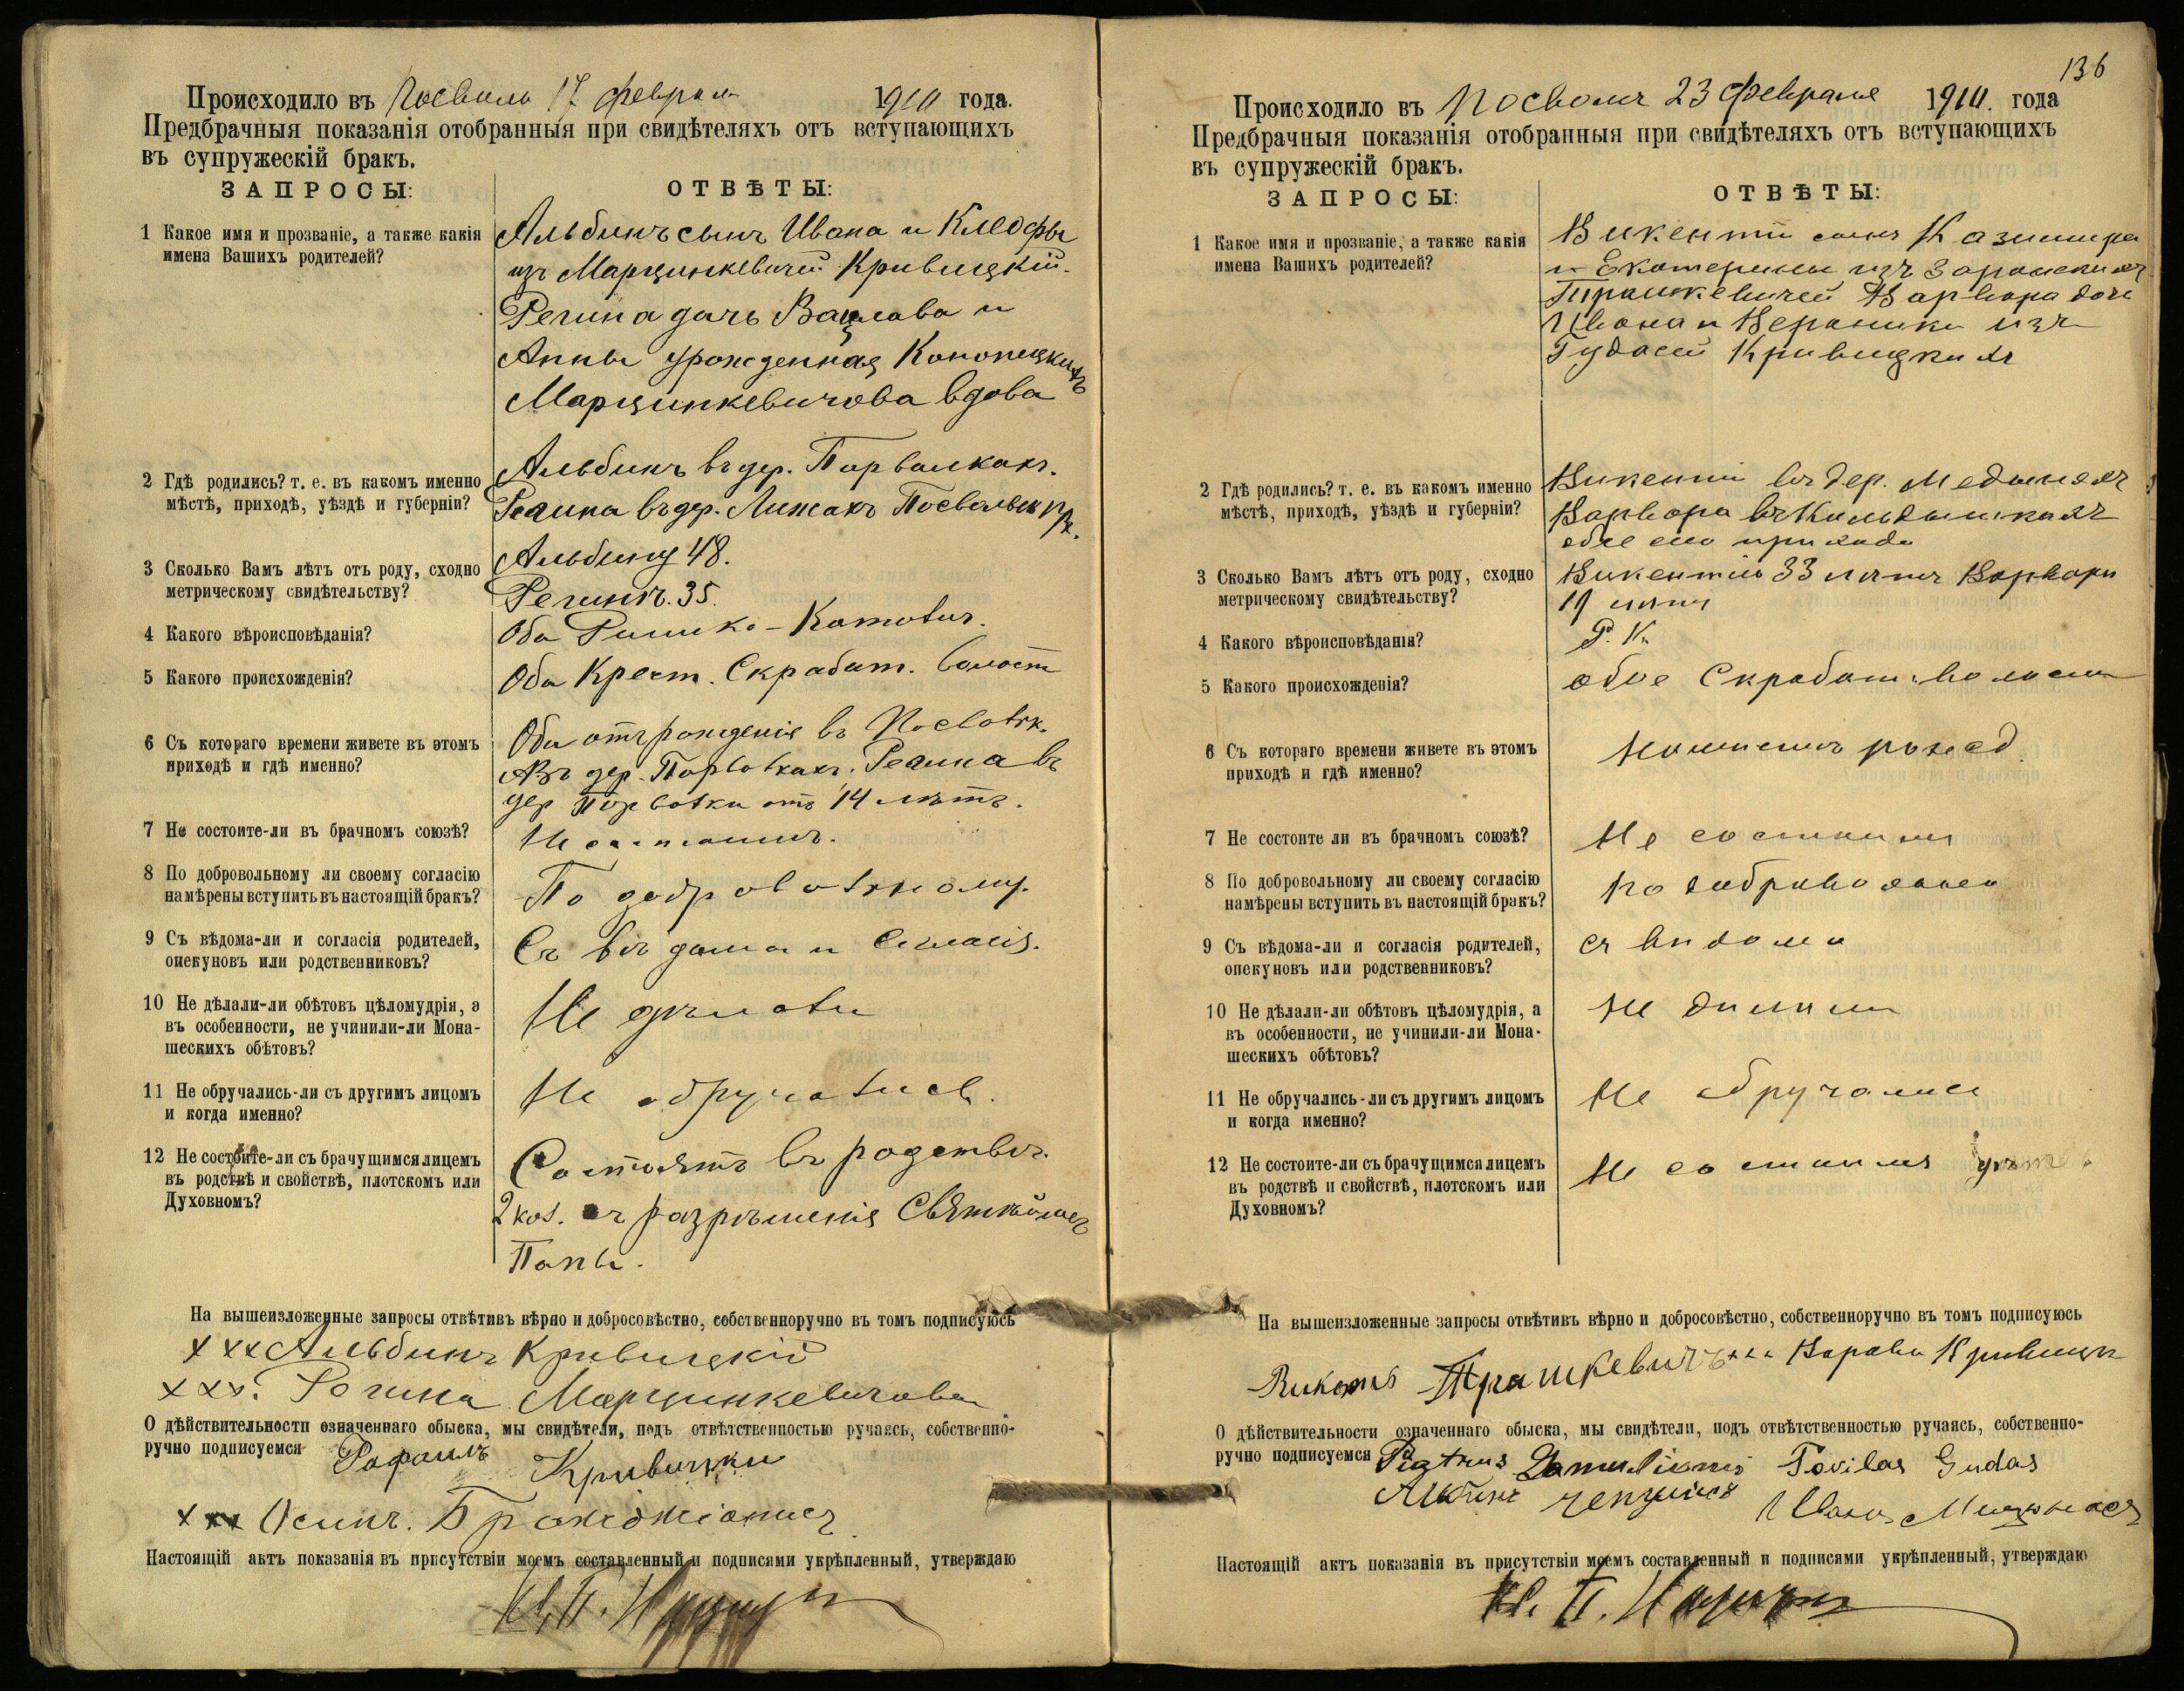 Происходило въ Посволь 17 февраля 1910 года.
Предбрачныя показанія отобранныя при свидѣтеляхъ отъ вступающихъ
въ супружескій бракъ.
ЗАПРОСЫ: ОТВѢТЫ:
1 Какое имя и прозваніе, а также какія
имена Вашихъ родителей?
Альбинъ сынъ Ивана и Клеофы
изъ Марцинкевичей Кривицкій.
Регина дочь Вацлава и
Анны урожденная Конопецкихъ
Марцинкевичова вдова
2 Гдѣ родились? т. е. въ какомъ именно
мѣстѣ, приходѣ, уѣздѣ и губерніи?
Альбинъ въ дер. Порвалкахъ.
въ дер. Посвольск пр.
3 Сколько Вамъ лѣтъ отъ роду, сходно
метрическому свидѣтельству?
Альбину 48.
Регинѣ. 35.
4 Какого вѣроисповѣданія?
Оба Римско-Католич.
5 Какого происхожденія?
Оба Крест. Скрабат. волости
6 Съ котораго времени живете въ этомъ
приходѣ и гдѣ именно?
Оба отъ рожденія въ Посвольск.
дер. въ
дер отъ 14 лѣтъ.
7 Не состоите-ли въ брачномъ союзѣ?
Не состоимъ.
8 По добровольному ли своему согласію
намѣрены вступить въ настоящій бракъ?
По добровольному.
9 Съ вѣдома-ли и согласія родителей,
опекуновъ или родственниковъ?
Съ вѣдома и согласія.
10 Не дѣлали-ли обѣтовъ цѣломудрія, а
въ особенности, не учинили-ли Мона-
шескихъ обѣтовъ?
Не дѣлали
11 Не обручались-ли съ другимъ лицомъ
и когда именно?
Не обручались.
12 Не состоите-ли съ брачущимся лицемъ
въ родствѣ и свойствѣ, плотскомъ или
Духовномъ?
Состоятъ въ родствѣ.
2 кол. съ разрѣшенія Святѣйшаго
Папы.
На вышеизложенные запросы отвѣтивъ вѣрно и добросовѣстно, собственноручно въ томъ подписуюсь
xxx Альбинъ Кривицкій
xxx. Регина Марцинкевичова
О дѣйствительности означеннаго обыска, мы свидѣтели, подъ отвѣтственностью ручаясь, собственно-
ручно подписуемся Рафаилъ Кривицки
xxx Осипъ.
Настоящій актъ показанія въ присутствіи моемъ составленный и подписями укрѣпленный, утверждаю
136
Происходило въ Посволь 23 февраля 1910. года
Предбрачныя показанія отобранныя при свидѣтеляхъ отъ вступающихъ
въ супружескій бракъ.
ЗАПРОСЫ: ОТВѢТЫ:
1 Какое имя и прозваніе, а также какія
имена Вашихъ родителей?
Викентій сынъ Казимира
и Екатерины изъ
Трашкевичей Варвара дочь
Ивана и Вероники изъ
Гудасей Кривицкихъ
2 Гдѣ родились? т. е. въ какомъ именно
мѣстѣ, приходѣ, уѣздѣ и губерніи?
Викентій въ дер.
Варвара въ
обѣ его прихода
3 Сколько Вамъ лѣтъ отъ роду, сходно
метрическому свидѣтельству?
Викентію 33 лѣтъ Варвары
19 лѣтъ
4 Какого вѣроисповѣданія?
Р. К.
5 Какого происхожденія?
обое Скрабат. волости
6 Съ котораго времени живете въ этомъ
приходѣ и гдѣ именно?
7 Не состоите ли въ брачномъ союзѣ?
Не состоимъ
8 По добровольному ли своему согласію
намѣрены вступить въ настоящій бракъ?
По добровольно
9 Съ вѣдома-ли и согласія родителей,
опекуновъ или родственниковъ?
съ вѣдома
10 Не дѣлали-ли обѣтовъ цѣломудрія, а
въ особенности, не учинили-ли Мона-
шескихъ обѣтовъ?
Не дѣлали
11 Не обручались-ли съ другимъ лицомъ
и когда именно?
Не обручались
12 Не состоите-ли съ брачущимся лицемъ
въ родствѣ и свойствѣ, плотскомъ или
Духовномъ?
Не состоимъ
На вышеизложенные запросы отвѣтивъ вѣрно и добросовѣстно, собственноручно въ томъ подписуюсь
Трашкевичъ xxx
О дѣйствительности означеннаго обыска, мы свидѣтели, подъ отвѣтственностью ручаясь, собственно-
ручно подписуемся Povilas Gudas
Настоящій актъ показанія въ присутствіи моемъ составленный и подписями укрѣпленный, утверждаю